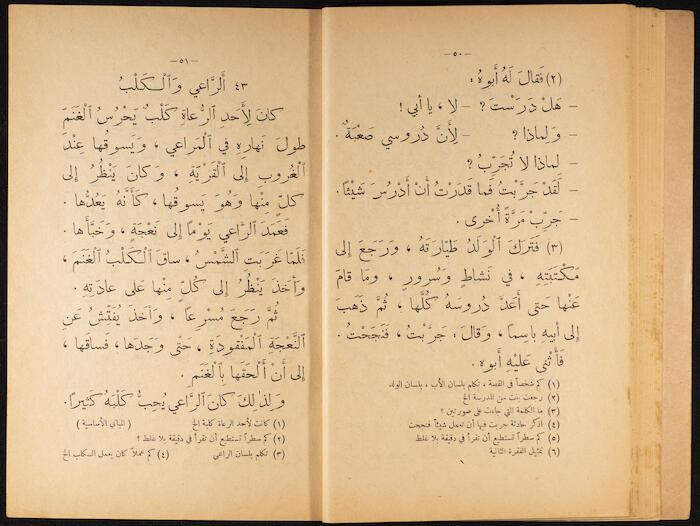 – ٥٠ –
(٢) فَقالَ لَهُ أَبوهُ :
– هَلْ دَرَسْتَ ؟ – لا ، يا أَبي !
– وَلِماذا ؟ – لِأَنَّ دُروسي صَعْبَةٌ .
– لماذا لا تُجَرِّبُ ؟
– لَقَدْ جَرَّبْتُ فَما قَدَرْتُ أَنْ أَدْرُسَ شَيْئًا .
– جَرِّبْ مَرَّةً أُخْرى .
(٣) فَتَرَكَ ٱلْوَلَدُ طَيّارَتَهُ ، وَرَجَعَ إِلى
مَكْتَبَتِهِ ، في نَشاطٍ وَسُرورٍ ، وَما قامَ
عَنْها حَتى أَعَدَّ دُروسَهُ كُلَّها ، ثُمَّ ذَهَبَ
إِلى أَبيهِ باسِمًا ، وَقالَ : جَرَّبْتُ ، فَنَجَحْتُ .
فَأَثْنى عَلَيْهِ أَبوه .
(١) كم شخصاً في القصة ، تكلم بلسان الأب ، بلسان الولد
(٢) رجعت بنت من المدرسة الخ
(٣) ما الكلمة التي جاءت على صورتين ؟
(٤) اذكر حادثة جربت فيها أن تعمل شيئاً فنجحت
(٥) كم سطراً تستطيع أن تقرأ في دقيقة بلا غلط
(٦) تمثيل الفقرة الثانية
– ٥١ –
٤٣ أَلرَّاعي وَٱلْكَلْبُ
كانَ لِأَحَدِ ٱلرُّعاةِ كَلْبٌ يَحْرُسُ ٱلْغَنَمَ
طولَ نَهارِهِ في ٱلْمَراعي ، وَيَسوقُها عِنْدَ
ٱلْغُروبِ إِلى ٱلْقَرْيَةِ ، وَكانَ يَنْظُرُ إِلى
كلٍّ مِنْها وَهُوَ يَسوقُها ، كَأَنَّهُ يَعُدُّها .
فَعَمَدَ ٱلرَّاعي يَوْمًا إِلى نَعْجَةٍ ، وَخَبَّأَها .
فَلَمّا غَرَبَتِ ٱلشَّمْسُ ، ساقَ ٱلْكَلْبُ ٱلْغَنَمَ ،
وَأَخَذَ يَنْظُرُ إِلى كُلٍّ مِنْها عَلى عادَتِهِ .
ثُمَّ رَجَعَ مُسْرِعًا ، وَأَخَذَ يُفَتِّشُ عَنِ
ٱلنَّعْجَةِ ٱلْمَفْقودَةِ ، حَتّى وَجَدَها ، فَساقَها ،
إِلى أَنْ أَلْحَقَها بِٱلْغَنَمِ .
وَلِذلِكَ كانَ ٱلرَّاعي يُحِبُّ كَلْبَهُ كَثيرًا .
(١) كانت لأحد الرعاة كلبة الخ ( المباني الأساسية )
(٢) كم سطراً تستطيع أن تقرأ في دقيقة بلا غلط ؟
(٣) تكلم بلسان الراعي (٤) كم عملاً كان يعمل الكلب الخ